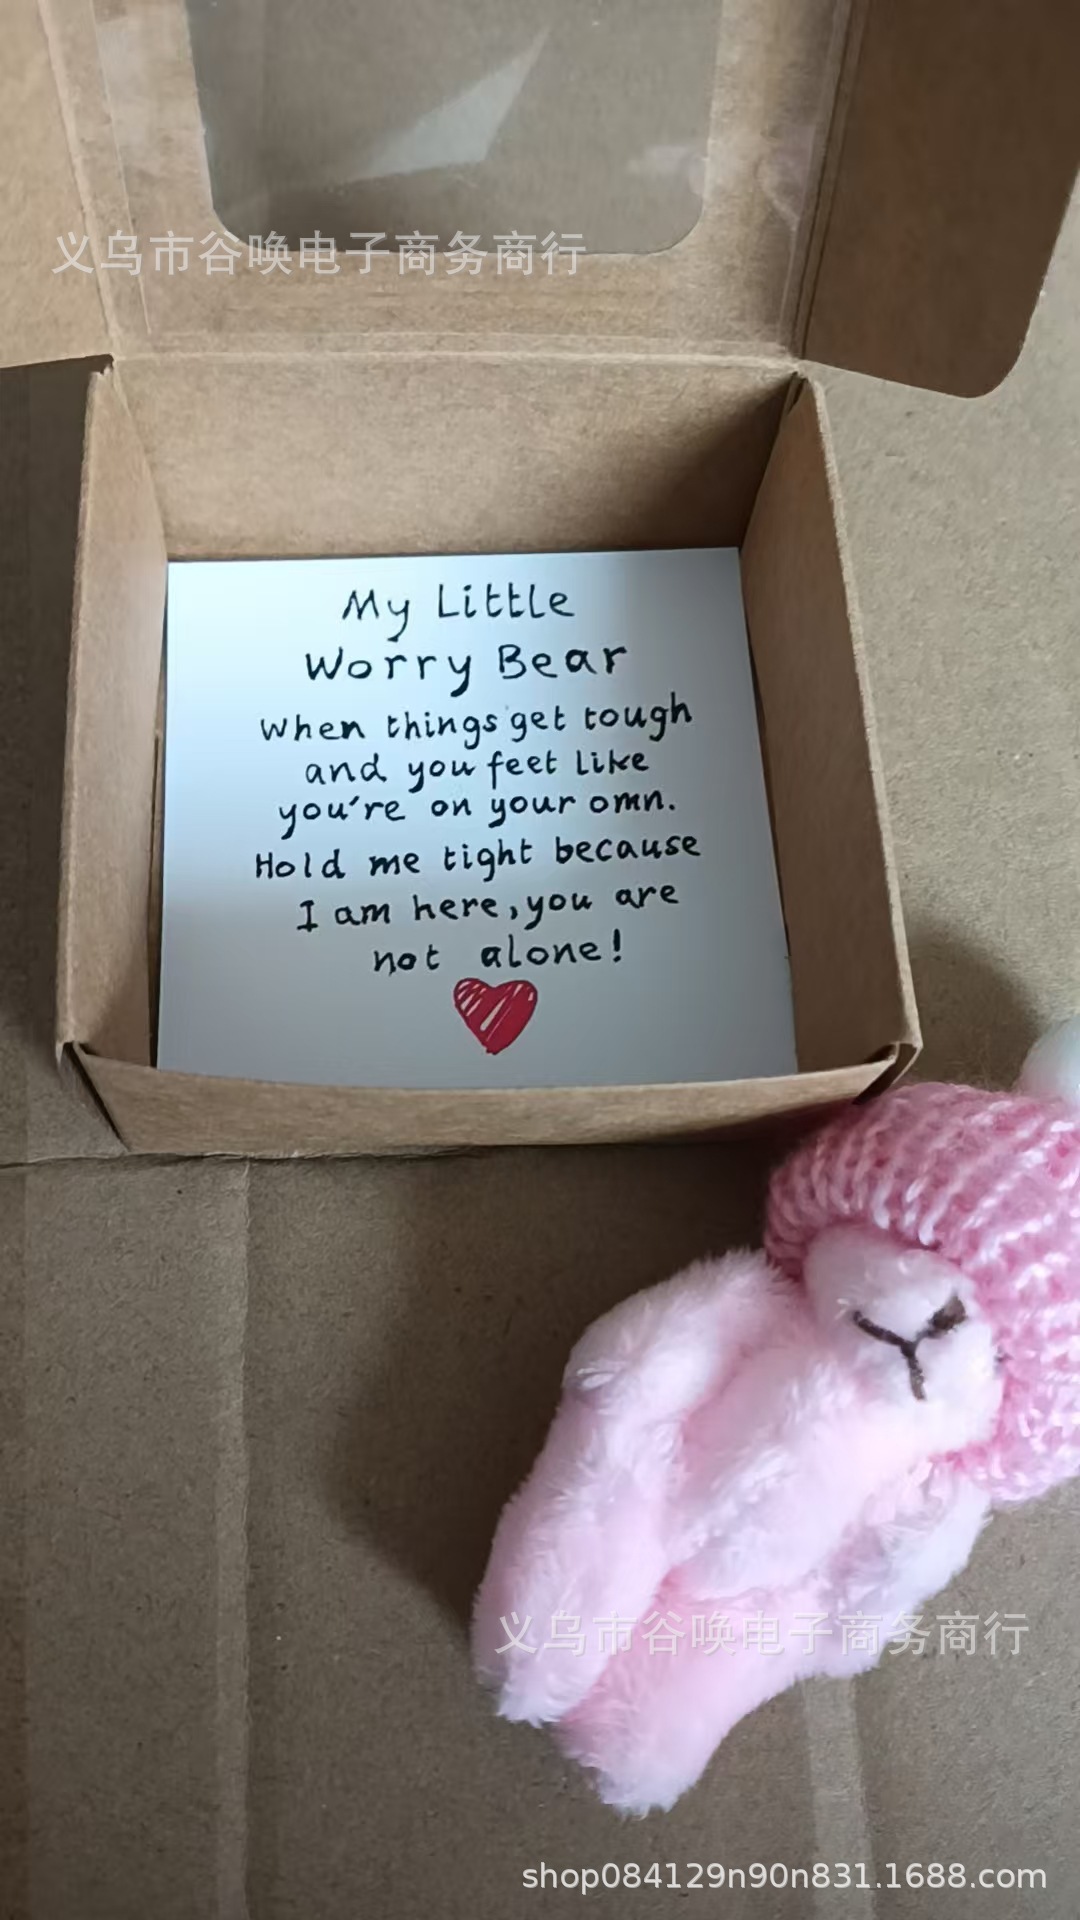 义乌市谷唤电子商务商行
My Little
Worry Bear
When things get tough
and you feet like
you're on your omn.
Hold me tight because
I am here, you are
not alone!
义乌市谷唤电子商务商行
shop084129n90n831.1688.com